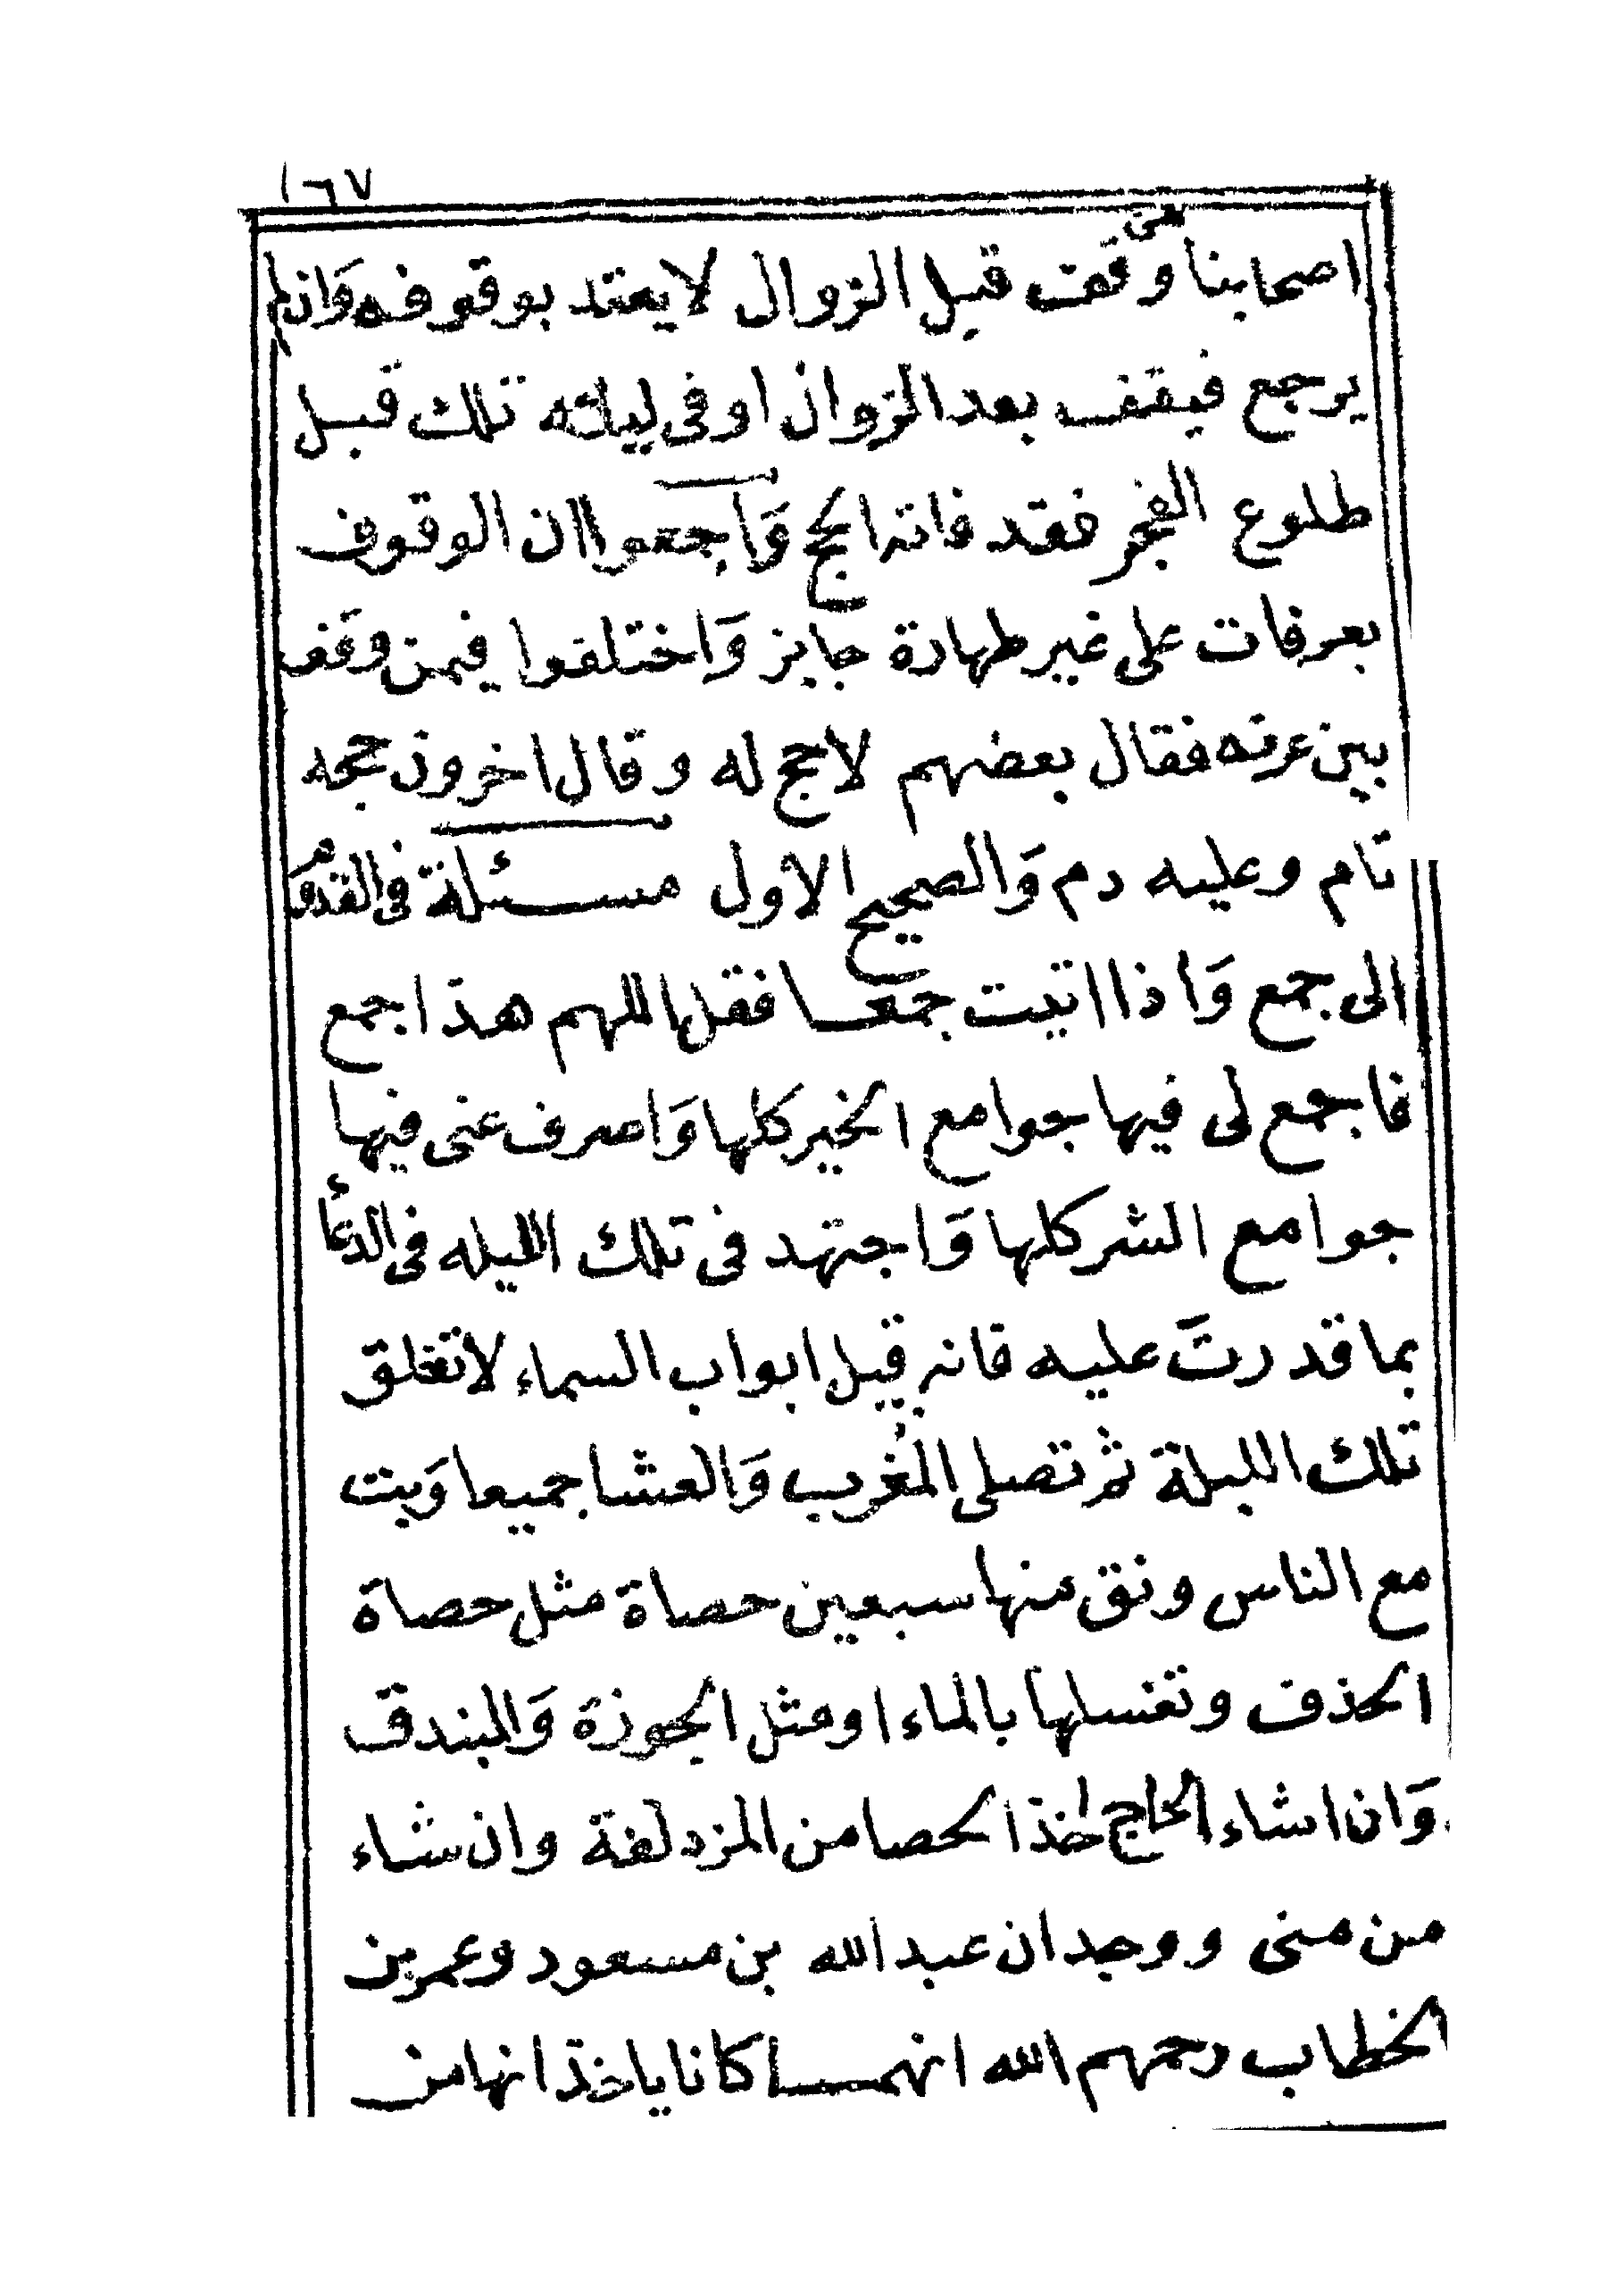 ١٦٧
اصحابنا وقف قبل الزوال لا يعتد بوقوفه وَان لم
يرجع فيقف بعد الزوال او في ليلته تلك قبل
طلوع الفجر فقد فاته الحج وَاجمعوا ان الوقوف
بعرفات على غير طهارة جايز وَاختلفوا فيمن وقف
ببين عرنه فقال بعضهم لا حج له وقال اخرون حجه
تام وعليه دم وَالصحيح الاول مسئلة في القدوم
الى جمع وَاذا اتيت جمعا فقل اللهم هذا جمع
فاجمع لى فيها جوامع الخير كلها وَاصرف عنى فيها
جوامع الشر كلها وَاجتهد في تلك الليله في الدعاء
بما قدرت عليه فانه قيل ابواب السماء لا تغلق
تلك الليلة ثم تصلى المغرب وَالعشا جميعا وَبت
مع الناس ونق منها سبعين حصاة مثل حصاة
الحذف وتغسلها بالماء او مثل الجوزة وَالبندق
وَان اشاء الحاج اخذ الحصا من المزدلفة وان شاء
من منى ووجد ان عبد الله بن مسعود وعمر بن
الخطاب رحمهم الله انهما كانا ياخذانها من